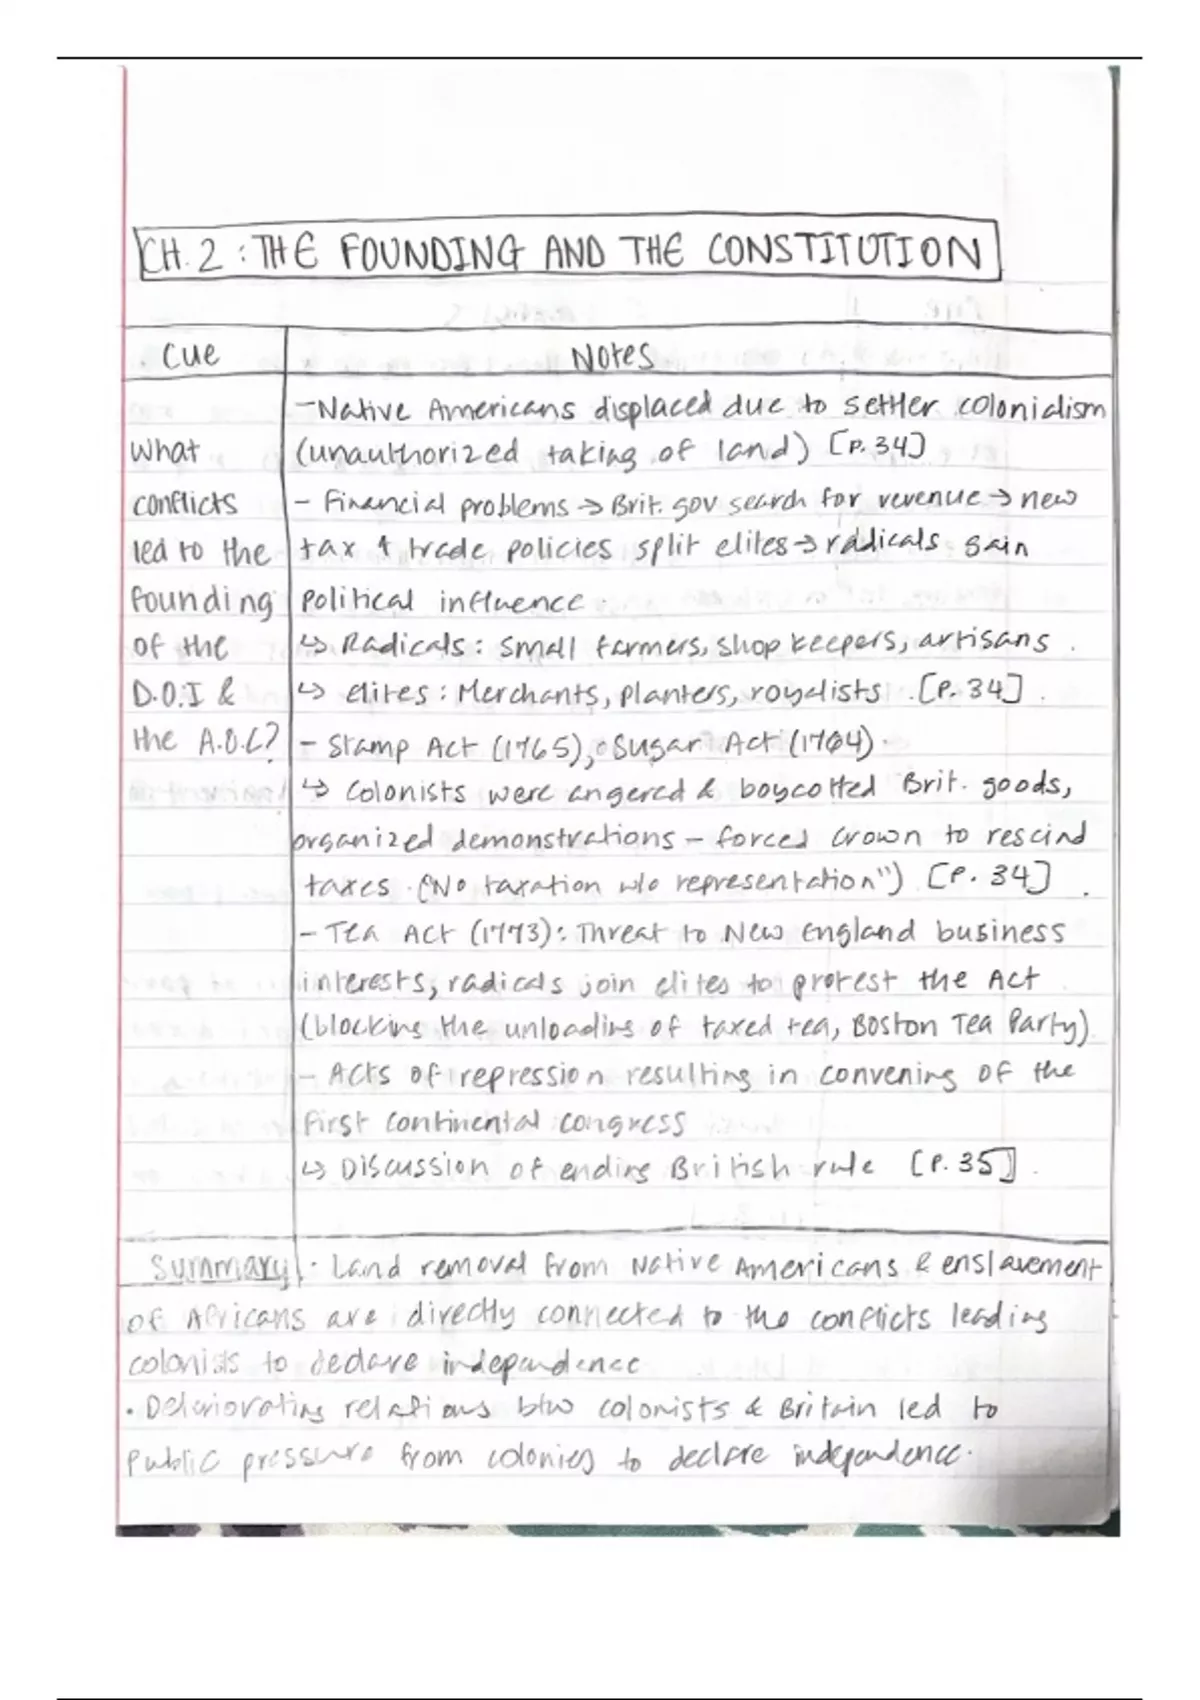 CH. 2 : THE FOUNDING AND THE CONSTITUTION
Cue
Notes
What
conflicts
led to the
founding
of the
D.O.I &
the A.O.C?
- Native Americans displaced due to settler colonialism
(unauthorized taking of land) [P. 34]
- Financial problems → Brit. gov search for revenue → new
tax & trade policies split elites → radicals gain
political influence
↳ Radicals: small farmers, shop keepers, artisans
↳ elites: Merchants, planters, royalists. [P. 34]
- Stamp Act (1765), Sugar Act (1764)
↳ Colonists were angered & boycotted Brit. goods,
organized demonstrations - forced crown to rescind
taxes. ("No taxation w/o representation") [P. 34]
- Tea Act (1773): Threat to New England business
interests, radicals join elites to protest the Act
(blocking the unloading of taxed tea, Boston Tea Party)
- Acts of repression resulting in convening of the
first continental congress
↳ Discussion of ending British rule [P. 35]
Summary · Land removal from Native Americans & enslavement
of Africans are directly connected to the conflicts leading
colonists to declare independence
· Deteriorating relations btw colonists & Britain led to
public pressure from colonies to declare independence.